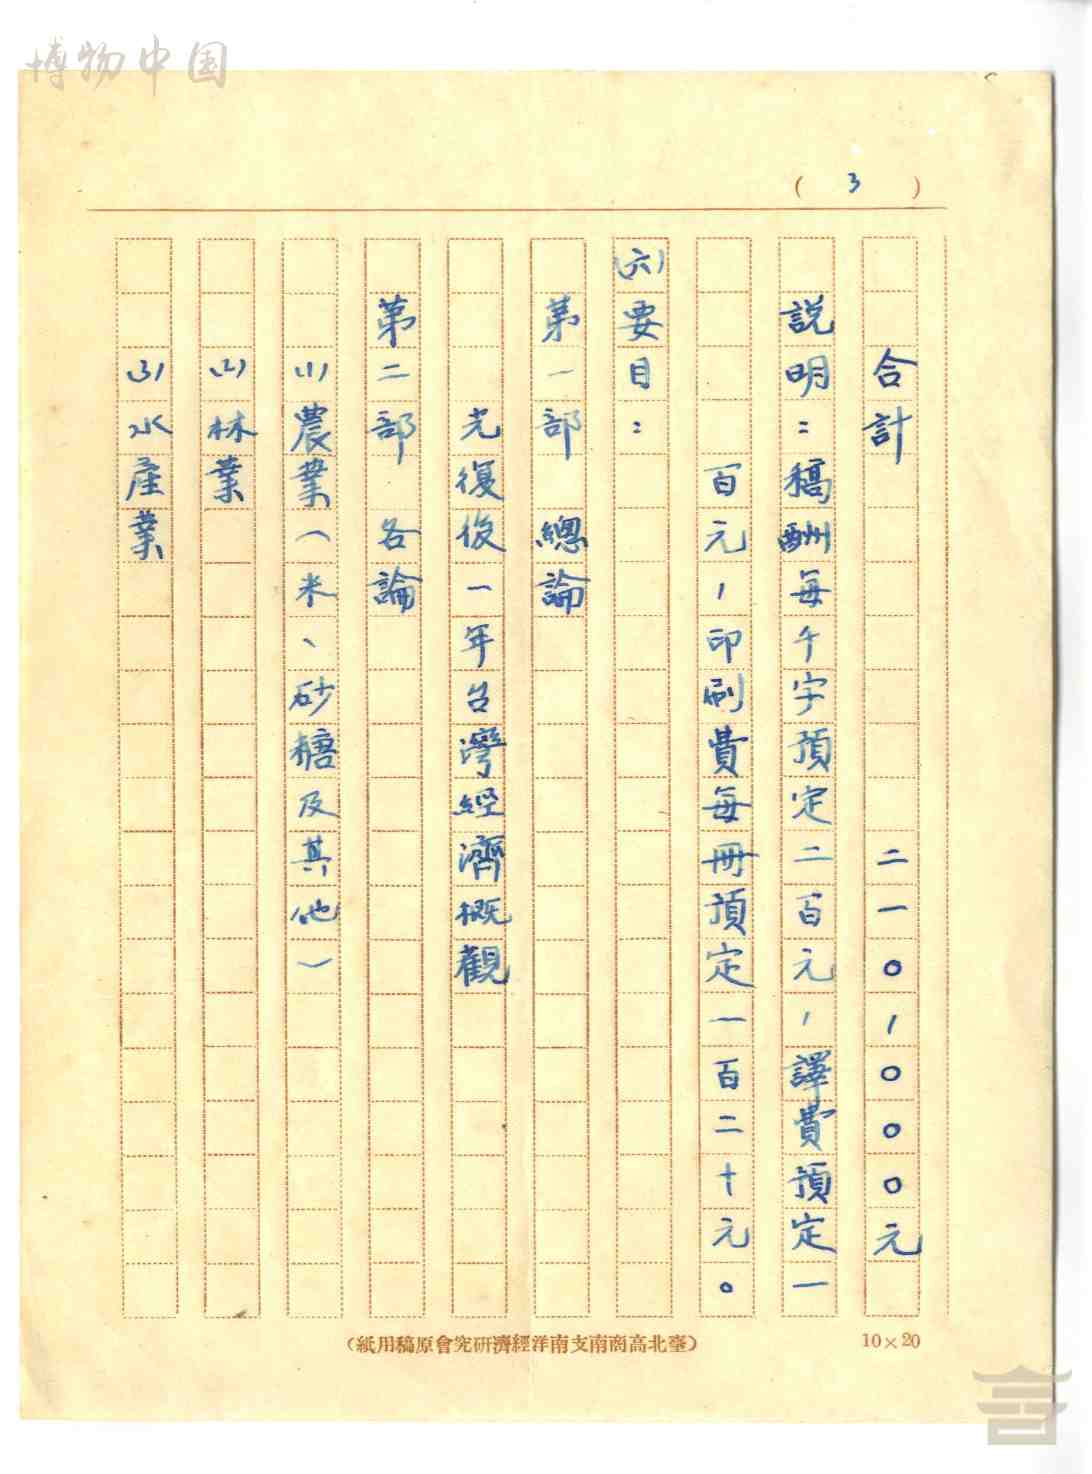 博物中国
( 3 )
合計 二一〇,〇〇〇元
說明:稿酬每千字預定二百元,譯費預定一
百元,印刷費每冊預定一百二十元。
(六)要目:
第一部 總論
光復後一年台灣經濟概觀
第二部 各論
(1)農業(米、砂糖及其他)
(2)林業
(3)水產業
(臺北高商南支南洋經濟研究會原稿用紙)
10×20